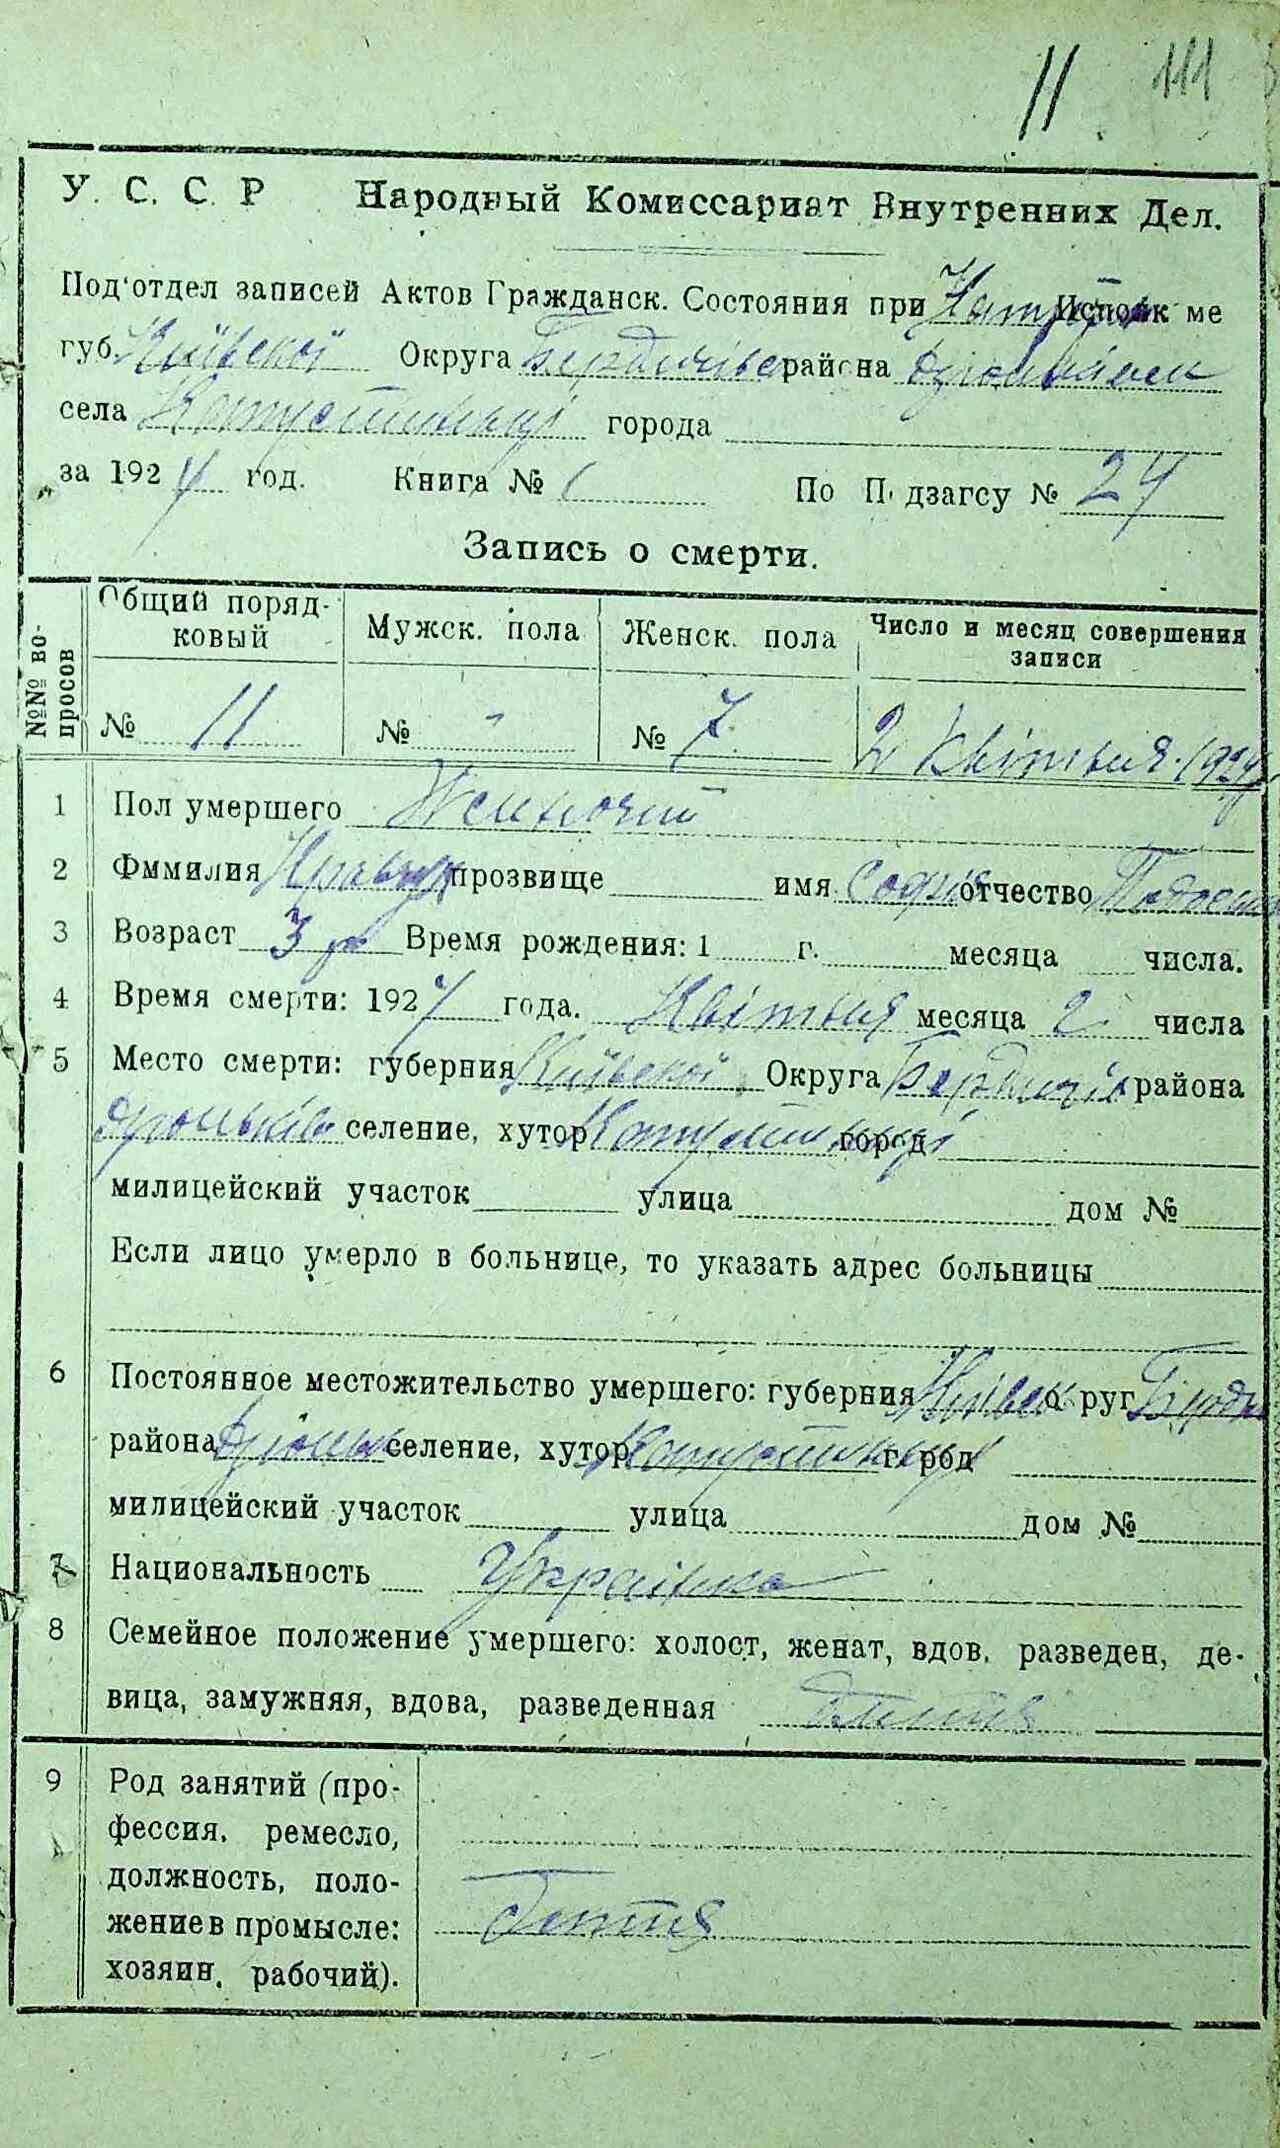 11 111
У. С. С. Р Народный Комиссариат Внутренних Дел.
Под'отдел записей Актов Гражданск. Состояния при Исполк ме
губ. Київської Округа Бердичівс района
села Капустинці города
за 1924 год. Книга № 1 По П дзагсу № 24
Запись о смерти.
№№ во-
просов
Общий поряд-
ковый
Мужск. пола
Женск. пола
Число и месяц совершения
записи
№ 11 № - № 7 2 Квітня 1924
1 Пол умершего Жиночий
2 Фммилия прозвище имя Софія отчество
3 Возраст 3 р Время рождения: 1 г. месяца числа.
4 Время смерти: 1924 года. Квітня месяца 2 числа
5 Место смерти: губерния Київської Округа Бердичів района
селение, хутор Капустинці город
милицейский участок улица дом №
Если лицо умерло в больнице, то указать адрес больницы
6 Постоянное местожительство умершего: губерния Київськ о руг Бердич
района селение, хутор Капустинці г род
милицейский участок улица дом №
7 Национальность Українка
8 Семейное положение умершего: холост, женат, вдов, разведен, де-
вица, замужняя, вдова, разведенная
9 Род занятий (про-
фессия, ремесло,
должность, поло-
жение в промысле:
хозяин, рабочий).